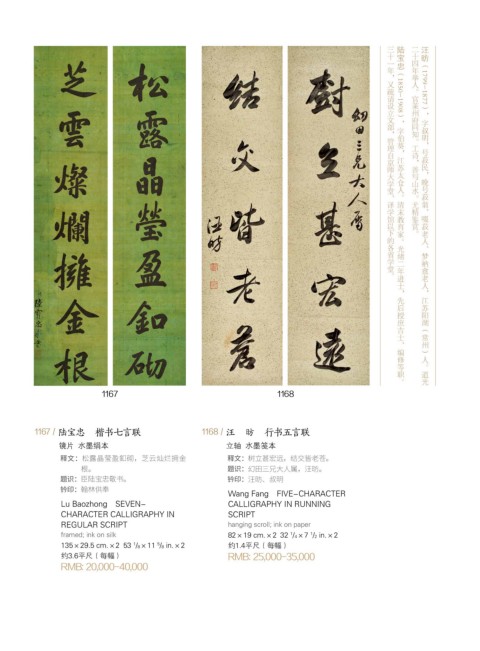 松露晶瑩盈釦砌
芝雲燦爛擁金根
臣陸寶忠敬書
樹立甚宏遠
幼田三兄大人屬
結交皆老蒼
汪昉
汪昉（1799—1877），字叔明，号菽民，
江苏阳湖（常州）人。道光
二十四年举人，官莱州府同知。工诗，善写山水，尤精鉴赏。
陆宝忠（1850-1908），字伯葵，江苏太仓人，清末教育家。光绪二年进士，先后授庶吉士，编修等职，
1167
1168
1167 / 陆宝忠 楷书七言联
镜片 水墨绢本
释文：松露晶莹盈釦砌，芝云灿烂拥金
根。
题识：臣陆宝忠敬书。
钤印：翰林供奉
Lu Baozhong SEVEN-
CHARACTER CALLIGRAPHY IN
REGULAR SCRIPT
framed; ink on silk
135 × 29.5 cm. × 2 53 1/8 × 11 5/8 in. × 2
约3.6平尺（每幅）
RMB: 20,000-40,000
1168 / 汪 昉 行书五言联
立轴 水墨笺本
释文：树立甚宏远，结交皆老苍。
题识：幻田三兄大人属，汪昉。
钤印：汪昉、叔明
Wang Fang FIVE-CHARACTER
CALLIGRAPHY IN RUNNING
SCRIPT
hanging scroll; ink on paper
82 × 19 cm. × 2 32 1/4 × 7 1/2 in. × 2
约1.4平尺（每幅）
RMB: 25,000-35,000